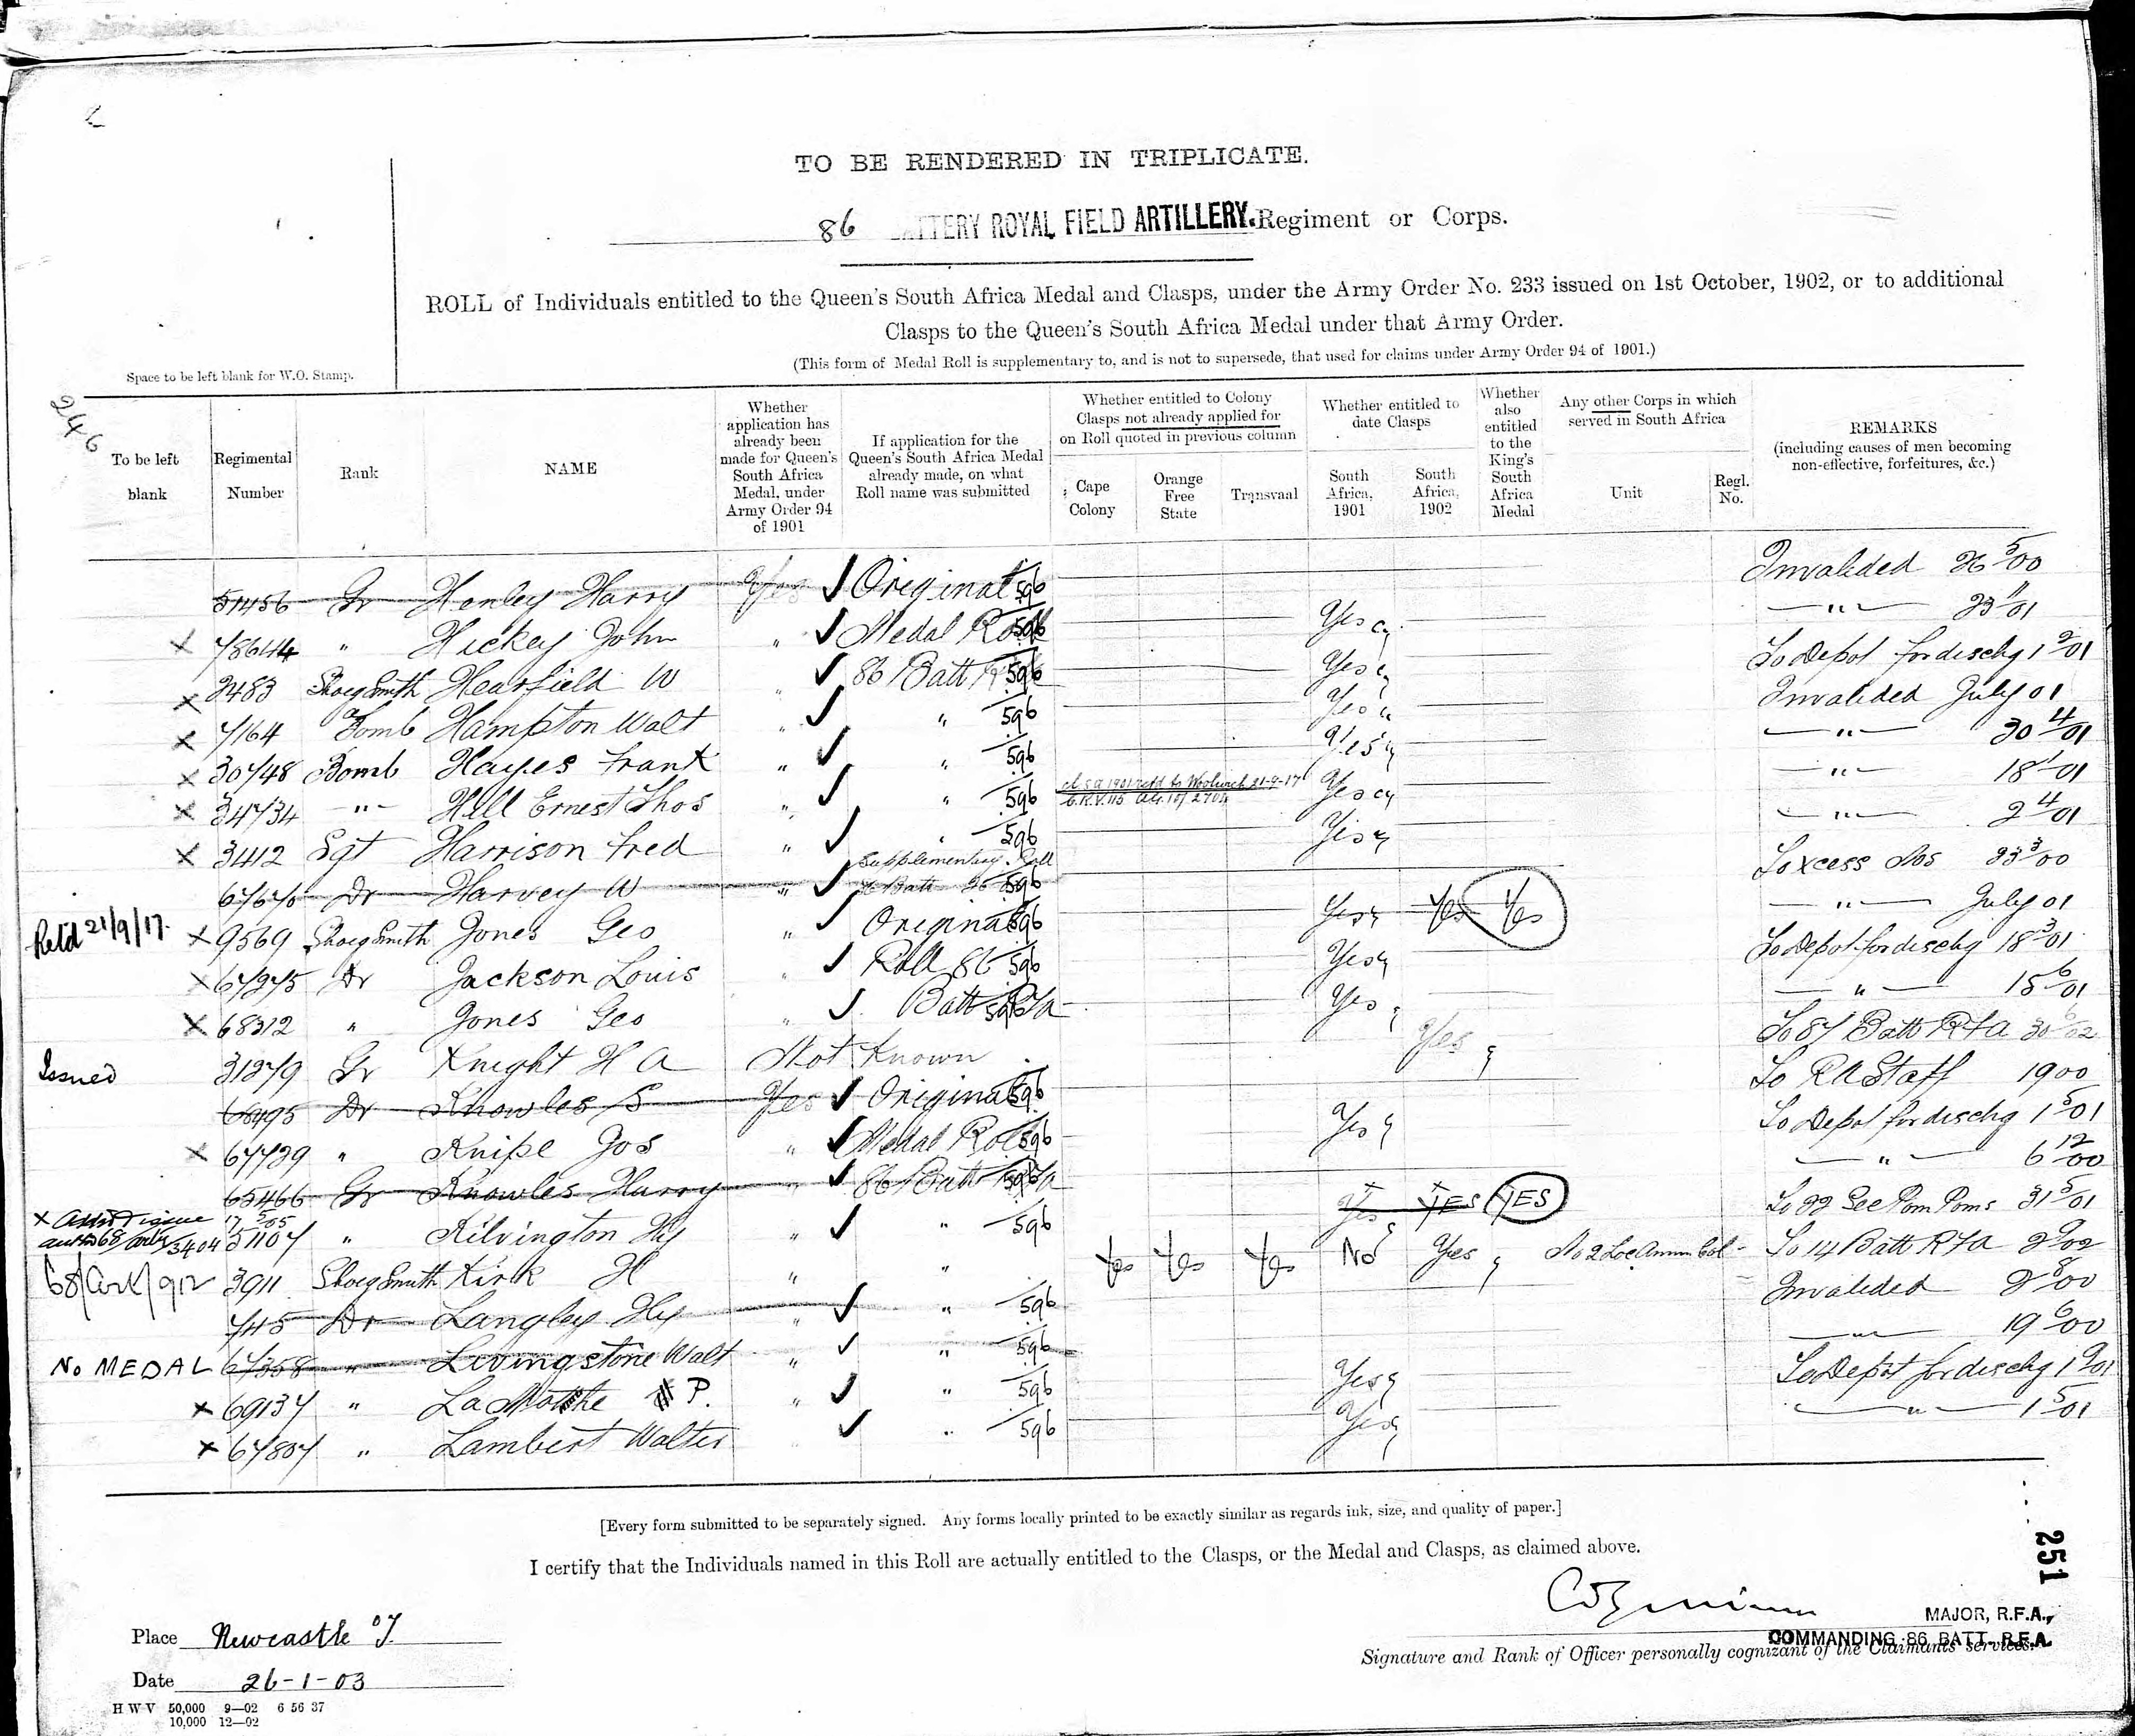 TO BE RENDERED IN TRIPLICATE.
86 BATTERY ROYAL FIELD ARTILLERY. Regiment or Corps.
ROLL of Individuals entitled to the Queen's South Africa Medal and Clasps, under the Army Order No. 233 issued on 1st October, 1902, or to additional
Clasps to the Queen's South Africa Medal under that Army Order.
(This form of Medal Roll is supplementary to, and is not to supersede, that used for claims under Army Order 94 of 1901.)
Space to be left blank for W.O. Stamp.
246
To be left blank
Regimental Number
Rank
NAME
Whether application has already been made for Queen's South Africa Medal, under Army Order 94 of 1901
If application for the Queen's South Africa Medal already made, on what Roll name was submitted
Whether entitled to Colony Clasps not already applied for on Roll quoted in previous column
Cape Colony
Orange Free State
Transvaal
Whether entitled to date Clasps
South Africa, 1901
South Africa, 1902
Whether also entitled to the King's South Africa Medal
Any other Corps in which served in South Africa
Unit
Regl. No.
REMARKS
(including causes of men becoming non-effective, forfeitures, &c.)
51456 Gr Henley Harry Yes ✓ Original 596 Invalided 26 5/00
x 78644 " Hickey John " ✓ Medal Roll 596 Yes —"— 23 1/01
x 2483 Shoeg Smith Hearfield W ✓ 86 Batt 596 Yes To Depot for dischg 1 9/01
x 7164 a Bomb Hampton Walt " ✓ " 596 Yes Invalided July 01
x 30748 Bomb Hayes Frank " ✓ " 596 Yes —"— 30 4/01
x 34734 —"— Hill Ernest Thos " ✓ " 596 Yes —"— 18 1/01
x 3412 Sgt Harrison Fred " ✓ " 596 Yes —"— 2 4/01
67676 Dr Harvey W " ✓ Supplementary Roll 596 To Xcess Nos 23 3/00
Retd 21/9/17. x 9569 Shoeg Smith Jones Geo " ✓ Original 596 Yes Yes Yes —"— July 01
x 67275 Dr Jackson Louis " ✓ Roll 86 596 Yes To Depot for dischg 18 3/01
x 68312 " Jones Geo " ✓ Batt RFA 596 Yes —"— 15 6/01
Issued 31279 Gr Knight H A Not Known Yes To 87 Batt RFA 30 6/02
68495 Dr Knowles S Yes ✓ Original 596 To RA Staff 1900
x 67729 " Knipe Jos " ✓ Medal Roll 596 Yes To Depot for dischg 1 5/01
65466 Gr Knowles Harry " ✓ 86 Batt RFA 596 —"— 6 12/00
17 5/05 51107 " Kilvington Hy " ✓ " 596 Yes YES YES To 22 Sec Pom Poms 31 5/01
68/Art/912 3911 Shoeg Smith Kirk H " " Yes Yes Yes No Yes No 2 Amm Col To 14 Batt RFA 2 9/02
745 Dr Langley Hy " ✓ " 596 Invalided 2 8/00
No MEDAL 67358 " Livingstone Walt " ✓ " 596 —"— 19 6/00
x 69137 " La Mothe P. " ✓ " 596 Yes To Depot for dischg 1 9/01
x 67807 " Lambert Walter ✓ " 596 Yes —"— 1 5/01
[Every form submitted to be separately signed. Any forms locally printed to be exactly similar as regards ink, size, and quality of paper.]
I certify that the Individuals named in this Roll are actually entitled to the Clasps, or the Medal and Clasps, as claimed above.
251
MAJOR, R.F.A.,
COMMANDING 86 BATT. R.F.A.
Signature and Rank of Officer personally cognizant of the Claimants' services.
Place Newcastle o/T.
Date 26-1-03
H W V 50,000 9—02 6 56 37
10,000 12—02